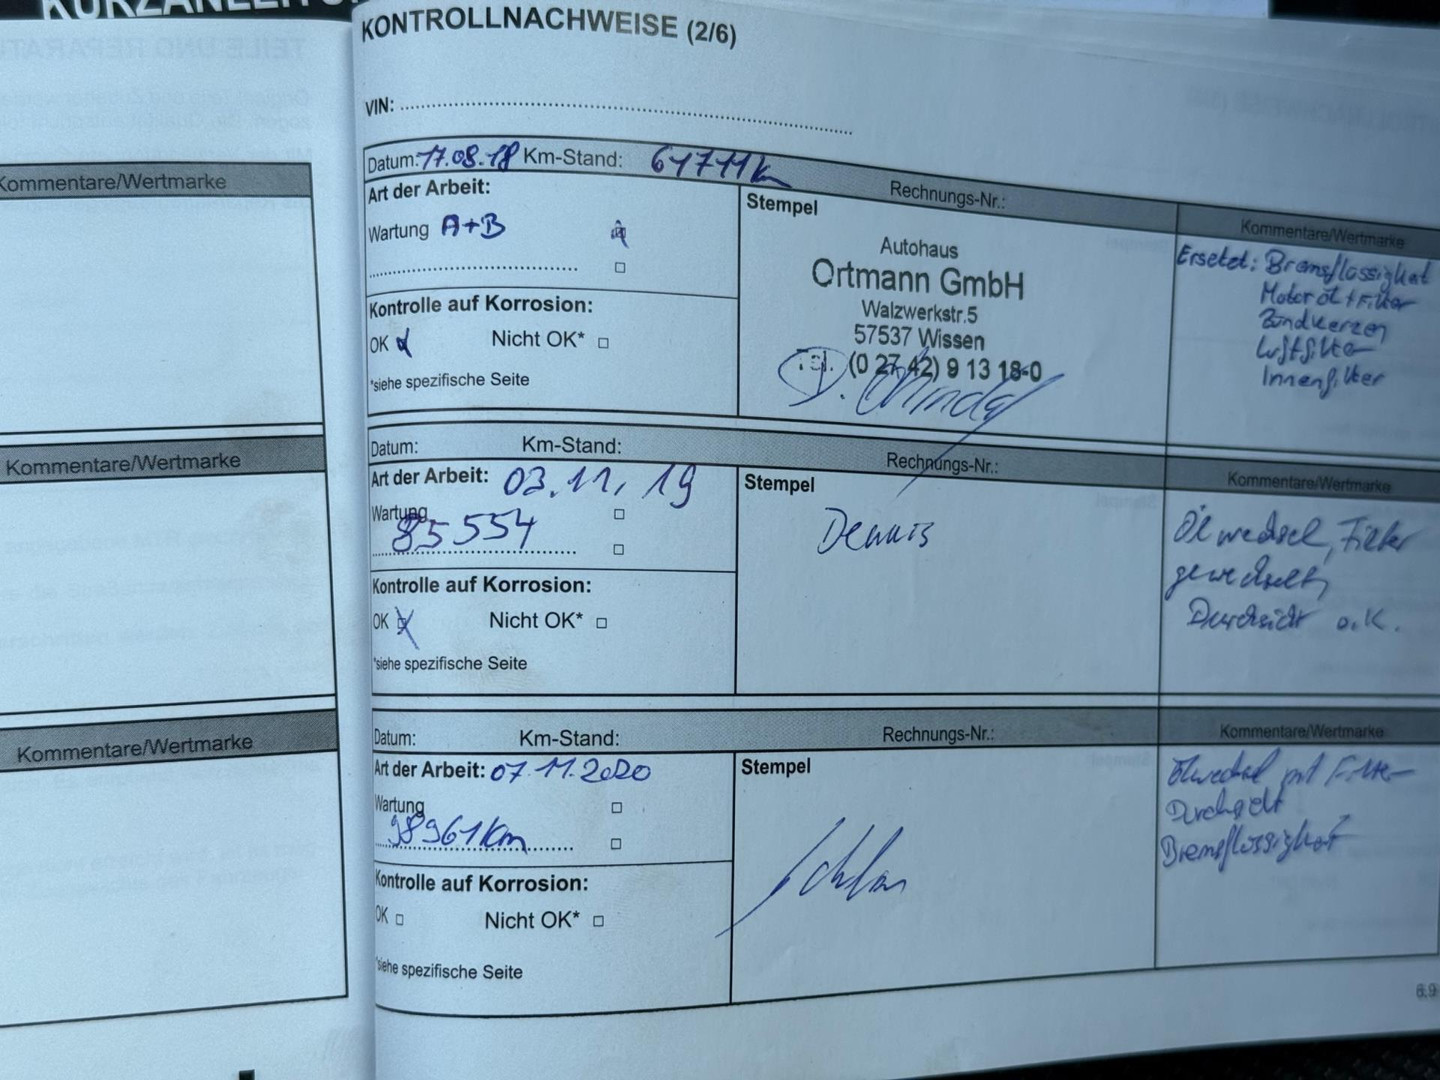 KONTROLLNACHWEISE (2/6)
VIN:
Kommentare/Wertmarke
Kommentare/Wertmarke
Kommentare/Wertmarke
Datum: 17.08.18 Km-Stand: 61711km Rechnungs-Nr.: Kommentare/Wertmarke
Art der Arbeit:
Wartung A+B
Kontrolle auf Korrosion:
OK Nicht OK*
*siehe spezifische Seite
Stempel
Autohaus
Ortmann GmbH
Walzwerkstr.5
57537 Wissen
Tel. (0 27 42) 9 13 18-0
Ersetzt: Bremsflüssigkeit
Motoröl + Filter
Zündkerzen
Luftfilter
Innenfilter
Datum: Km-Stand: Rechnungs-Nr.: Kommentare/Wertmarke
Art der Arbeit: 03.11.19
Wartung
85554
Kontrolle auf Korrosion:
OK Nicht OK*
*siehe spezifische Seite
Stempel
Dennis
Ölwechsel, Filter
gewechselt,
Durchsicht o.K.
Datum: Km-Stand: Rechnungs-Nr.: Kommentare/Wertmarke
Art der Arbeit: 07.11.2020
Wartung
98961km
Kontrolle auf Korrosion:
OK Nicht OK*
*siehe spezifische Seite
Stempel
Ölwechsel mit Filter
Durchsicht
Bremsflüssigkeit
6.9